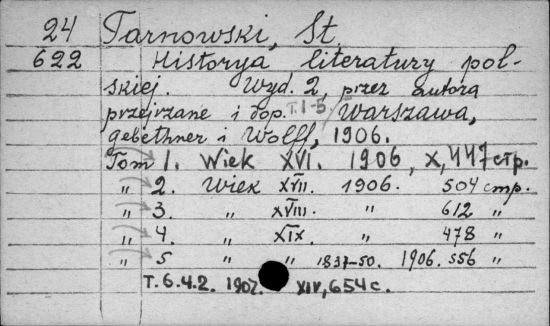 24 Tarnowski, St.
622 Historya literatury pol-
skiej. Wyd. 2, przez autora
przejrzane i dop. T.1-5. Warszawa,
gebethner i Wolff, 1906.
Tom 1. Wiek XVI. 1906, X, 447 стр.
" 2. Wiek XVII. 1906. 504 стр.
" 3. " XVIII. " 612 "
" 4. " XIX. " 478 "
" 5 " " 1831-50. 1906. 556 "
Т.6.ч.2. 1907. XIV, 654 с.